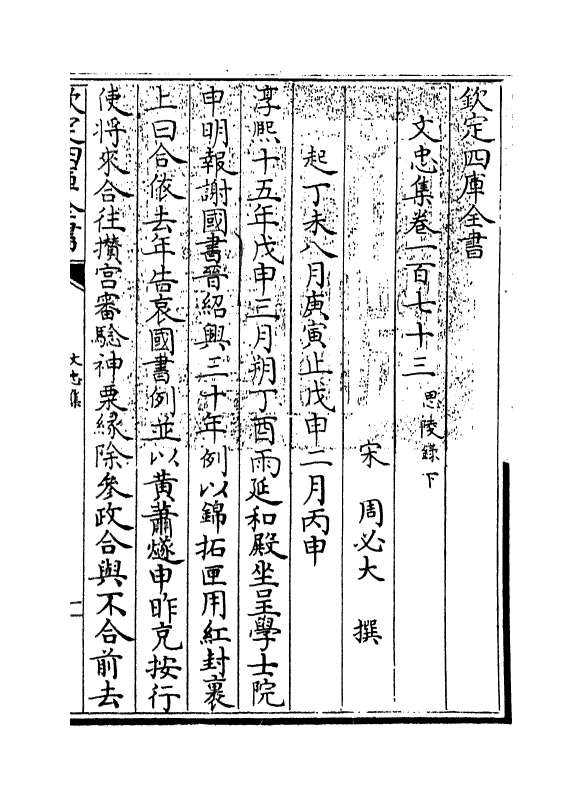 欽定四庫全書
文忠集卷一百七十三 思陵録下
宋 周必大 撰
起丁未八月庚寅止戊申二月丙申
淳熙十五年戊申三月朔丁酉雨延和殿坐呈學士院
申明報謝國書晉紹興三十年例以錦拓匣用紅封裹
上曰合依去年告哀國書例並以黄蕭燧申昨充按行
使將來合往攢宫審驗神粟縁除參政合與不合前去
欽定四庫全書
文忠集
一